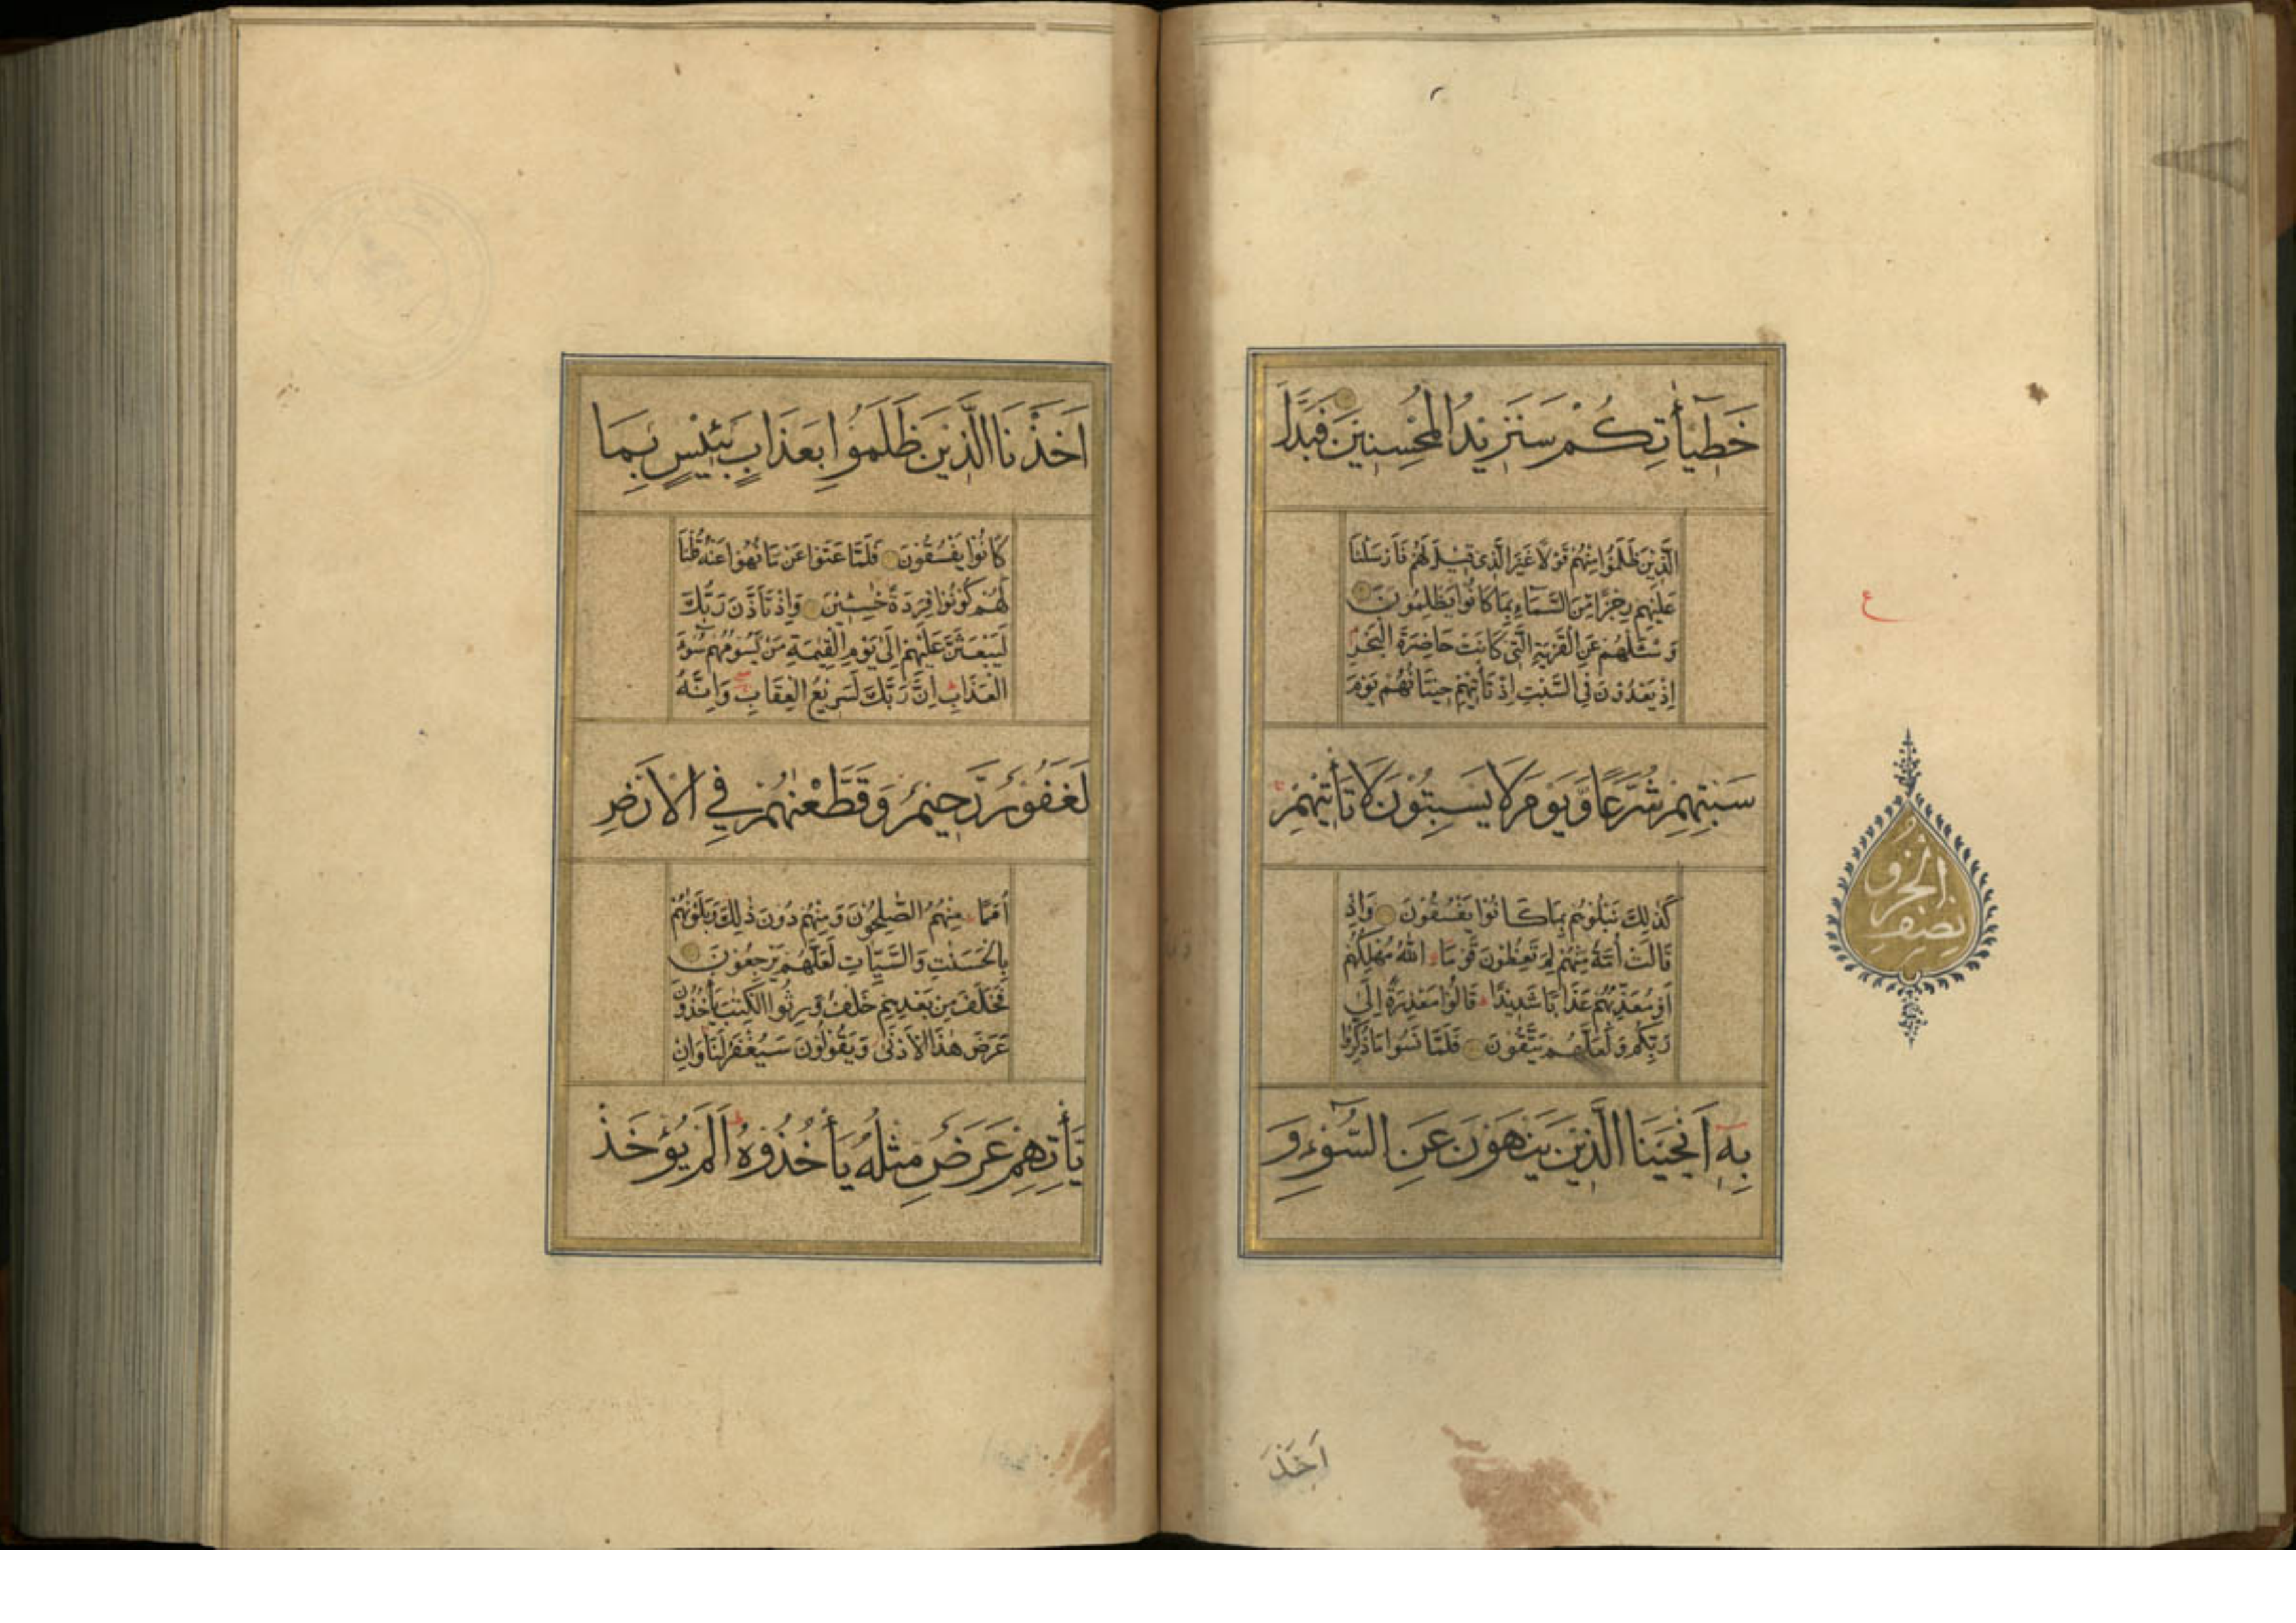 خَطِيْأَتِكُمْ سَنَزِيْدُ الْمُحْسِنِيْنَ فَبَدَّلَ
الَّذِيْنَ ظَلَمُوْا مِنْهُمْ قَوْلًا غَيْرَ الَّذِى قِيْلَ لَهُمْ فَاَرْسَلْنَا
عَلَيْهِمْ رِجْزًا مِّنَ السَّمَاءِ بِمَا كَانُوْا يَظْلِمُوْنَ
وَسْئَلْهُمْ عَنِ الْقَرْيَةِ الَّتِى كَانَتْ حَاضِرَةَ الْبَحْرِ
اِذْ يَعْدُوْنَ فِى السَّبْتِ اِذْ تَأْتِيْهِمْ حِيْتَانُهُمْ يَوْمَ
سَبْتِهِمْ شُرَّعًا وَّيَوْمَ لَا يَسْبِتُوْنَ لَا تَأْتِيْهِمْ
كَذٰلِكَ نَبْلُوْهُمْ بِمَا كَانُوْا يَفْسُقُوْنَ وَاِذْ
قَالَتْ اُمَّةٌ مِّنْهُمْ لِمَ تَعِظُوْنَ قَوْمَا اللّٰهُ مُهْلِكُهُمْ
اَوْ مُعَذِّبُهُمْ عَذَابًا شَدِيْدًا قَالُوْا مَعْذِرَةً اِلٰى
رَبِّكُمْ وَلَعَلَّهُمْ يَتَّقُوْنَ فَلَمَّا نَسُوْا مَا ذُكِّرُوْا
بِهٖ اَنْجَيْنَا الَّذِيْنَ يَنْهَوْنَ عَنِ السُّوْءِ وَ
ع
نصف الحزب
اَخَذْ
اَخَذْنَا الَّذِيْنَ ظَلَمُوْا بِعَذَابٍ بَئِيْسٍ بِمَا
كَانُوْا يَفْسُقُوْنَ فَلَمَّا عَتَوْا عَنْ مَا نُهُوْا عَنْهُ قُلْنَا
لَهُمْ كُوْنُوْا قِرَدَةً خٰسِئِيْنَ وَاِذْ تَاَذَّنَ رَبُّكَ
لَيَبْعَثَنَّ عَلَيْهِمْ اِلٰى يَوْمِ الْقِيٰمَةِ مَنْ يَّسُوْمُهُمْ سُوْءَ
الْعَذَابِ اِنَّ رَبَّكَ لَسَرِيْعُ الْعِقَابِ وَاِنَّهُ
لَغَفُوْرٌ رَّحِيْمٌ وَقَطَّعْنٰهُمْ فِى الْاَرْضِ
اُمَمًا مِنْهُمُ الصّٰلِحُوْنَ وَمِنْهُمْ دُوْنَ ذٰلِكَ وَبَلَوْنٰهُمْ
بِالْحَسَنٰتِ وَالسَّيِّاٰتِ لَعَلَّهُمْ يَرْجِعُوْنَ
فَخَلَفَ مِنْ بَعْدِهِمْ خَلْفٌ وَّرِثُوا الْكِتٰبَ يَأْخُذُوْنَ
عَرَضَ هٰذَا الْاَدْنٰى وَيَقُوْلُوْنَ سَيُغْفَرُ لَنَا وَاِنْ
يَّأْتِهِمْ عَرَضٌ مِثْلُهُ يَأْخُذُوْهُ اَلَمْ يُؤْخَذْ